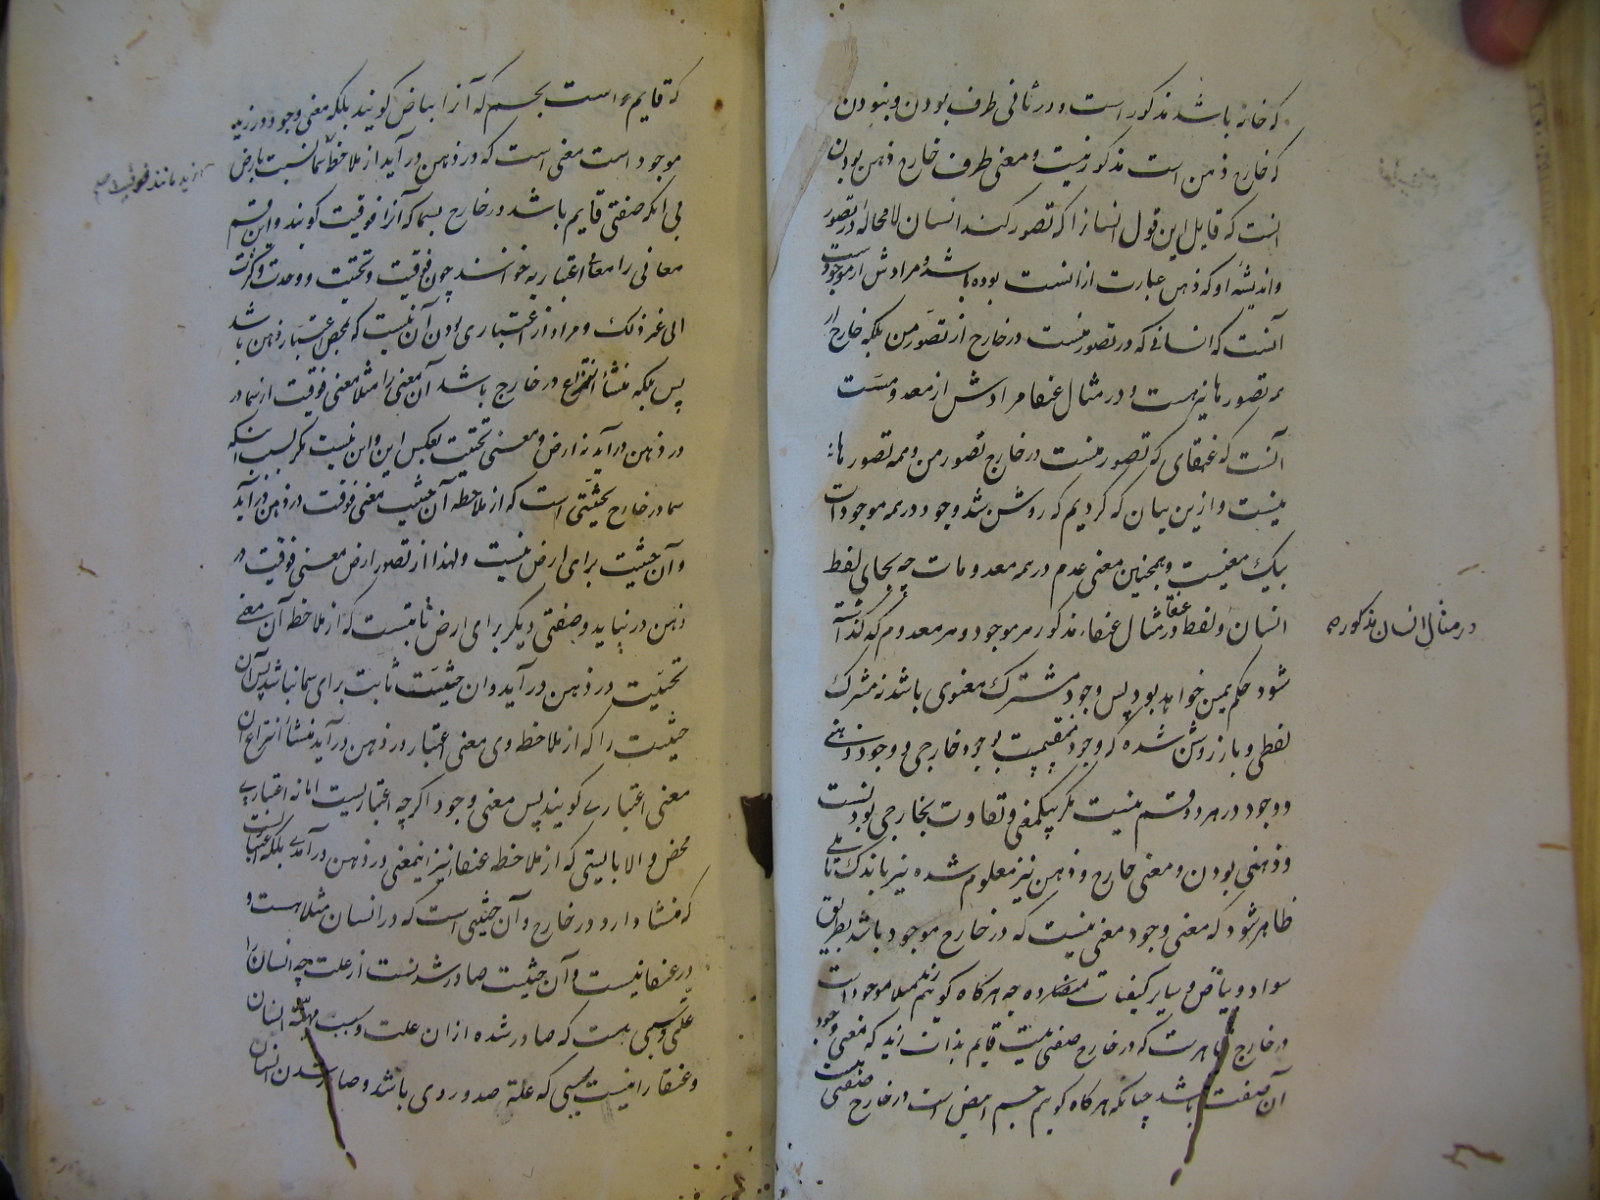 که خانه باشد مذکور است و در ثانی ظرف بودن و نبودن
که خارج ذهن است مذکور نیست و معنی ظرف خارج ذهن بودن
انست که قایل این قول انسان را که تصور کند انسان لامحاله در تصور
و اندیشهٔ او که ذهن عبارت از انست بوده باشد و مرادش از موجودست
آنست که انسانی که در تصور منست در خارج از تصور من بلکه خارج از
همه تصورها نیز هست و در مثال عنقا مرادش از معدومست
آنست که عنقای که تصور منست در خارج تصور من و همه تصورها
نیست و ازین بیان که کردیم که روشن شد وجود در همه موجودات
بیک معنیست و همچنین معنی عدم در همه معدومات چه بجای لفظ
انسان و لفظ عنقا در مثال عنقاء مذکور هر موجود و هر معدوم که گذاشته
در مثال انسان مذکوره
شود حکم همین خواهد بود پس وجود مشترک معنوی باشد نه مشترک
لفظی و باز روشن شد که وجود منقسم بوجود خارجی و وجود ذهنی
و وجود در هر دو قسم نیست مگر بیکمعنی و تفاوت بخارجی بودنست
و ذهنی بودن و معنی خارج و ذهن نیز معلوم شده نیز باندک تاملی
ظاهر شود که معنی وجود معنی نیست که در خارج موجود باشد بطریق
سواد و بیاض و سایر کیفیات چه هرگاه گوئیم زید مثلا موجود است
در خارج ظاهرست که در خارج صفتی نیست قایم بذات زید که معنی وجود
آن صفت باشد چنانکه هرگاه گویم جسم ابیض است در خارج صفتی هست
که قایم است بجسم که آنرا بیاض گویند بلکه معنی وجود در زید
موجود است معنی است که در ذهن در آید از ملاحظه سما نسبت بارض
زید مانند فوقیت
بی انکه صفتی قایم باشد در خارج بسما که آنرا فوقیت گویند و این قسم
معانی را معانی اعتباریه خوانند چون فوقیت و تحتیت و وحدت و کثرت
الی غیر ذلک و مراد از اعتباری بودن آن نیست که بمحض اعتبار ذهن باشد
پس بلکه منشأ انتزاع در خارج باشد آن معنی را مثلا معنی فوقیت از سما در
در ذهن در آید نه ارض و معنی تحتیت بعکس این و این نیست مگر بسبب آنکه
سما در خارج بحیثیتی است که از ملاحظه آن حیثیت معنی فوقیت در ذهن در آید
و آن حیثیت برای ارض نیست و لهذا از تصور ارض معنی فوقیت در
ذهن در نیاید و صفتی دیگر برای ارض ثابتست که از ملاحظه آن معنی
تحتیت در ذهن در آید و ان حیثیت ثابت برای سما نباشد پس آن
حیثیت را که از ملاحظه وی معنی اعتبار در ذهن در آید منشأ انتزاع آن
معنی اعتباری گویند پس معنی وجود اگر چه اعتباریست اما نه اعتباری
محض و الا بایستی که از ملاحظه عنقا نیز اینمعنی در ذهن در آمدی بلکه اعتباریست
که منشأ دارد در خارج و آن حیثیتی است که در انسان مثلا هست و
در عنقا نیست و آن حیثیت صادر شدنست از علت چه انسان را
علتی و سببی هست که صادر شده از ان علت و سبب انسان
و عنقا را نیست سببی که علة صدور وی باشد و صادر شدن انسان